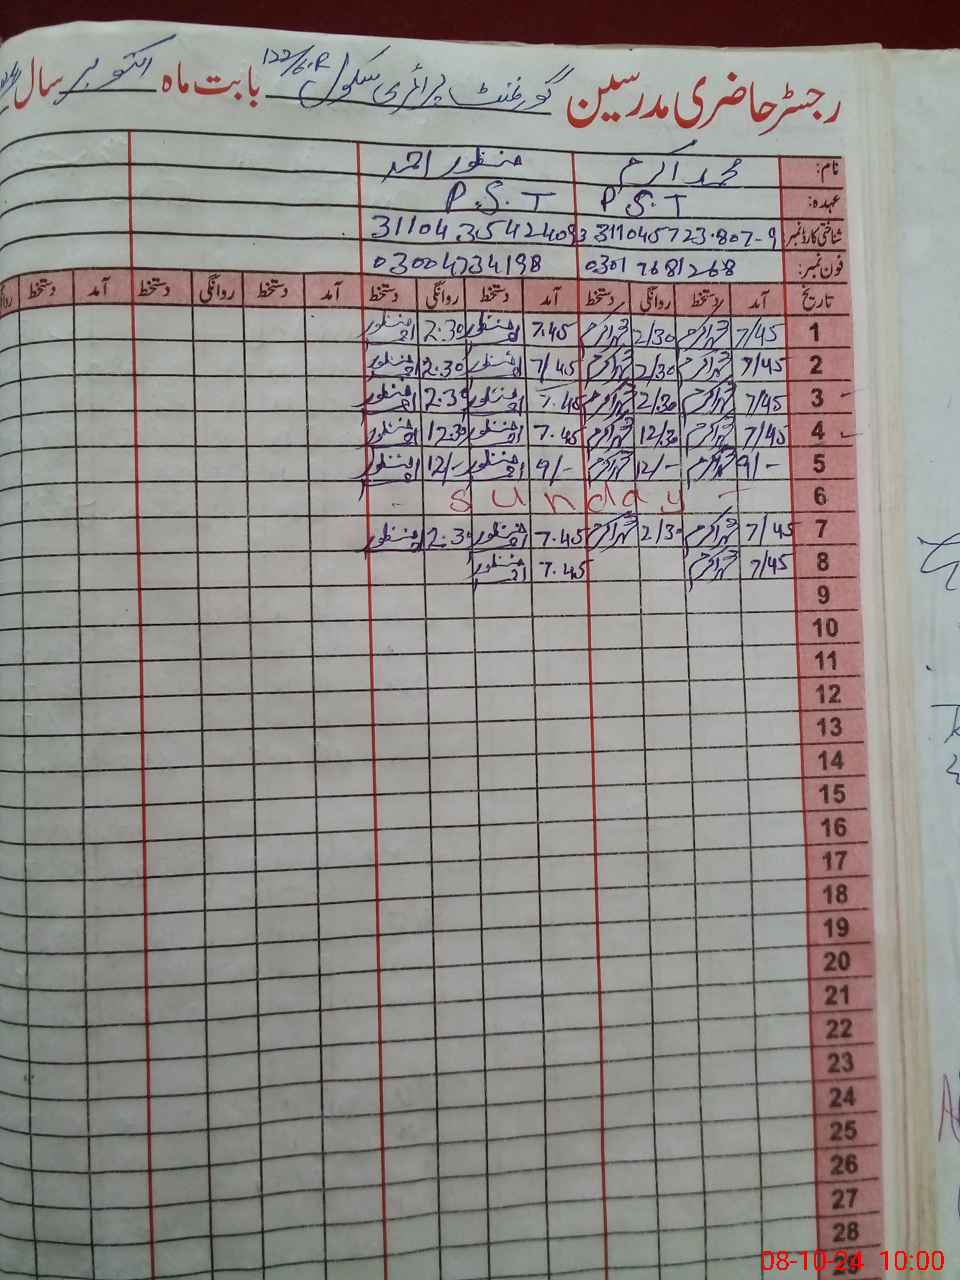 رجسٹر حاضری مدرسین گورنمنٹ پرائمری سکول 122/6.R بابت ماہ اکتوبر سال
نام: محمد اکرم منظور احمد
عہدہ: P.S.T P.S.T
شناختی کارڈ نمبر
فون نمبر: 0301 7681268 03004734198
تاریخ آمد دستخط روانگی دستخط آمد دستخط روانگی دستخط آمد دستخط روانگی دستخط آمد دستخط
1 7/45 محمد اکرم 2/30 محمد اکرم 7.45 منظور احمد 2:30 منظور احمد
2 7/45 محمد اکرم 2/30 محمد اکرم 7/45 منظور احمد 2:30 منظور احمد
3 7/45 محمد اکرم 2/30 محمد اکرم 7.45 منظور احمد 2:30 منظور احمد
4 7/45 محمد اکرم 12/30 محمد اکرم 7.45 منظور احمد 12:30 منظور احمد
5 9/- محمد اکرم 12/- محمد اکرم 9/- منظور احمد 12/- منظور احمد
6 - sunday -
7 7/45 محمد اکرم 2/30 محمد اکرم 7.45 منظور احمد 2:30 منظور احمد
8 7/45 محمد اکرم 7.45 منظور احمد
9
10
11
12
13
14
15
16
17
18
19
20
21
22
23
24
25
26
27
28
29
08-10-24 10:00